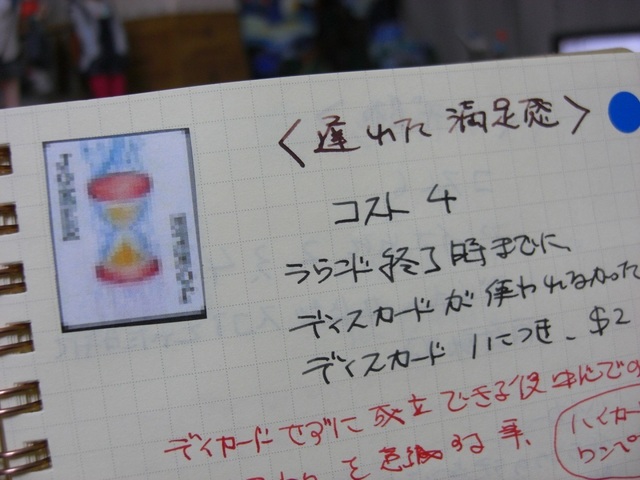 〈遅れた満足感〉
コスト 4
ラウンド終了時までに、
ディスカードが使われなかった
ディスカード1につき、$2
ディカードせずに成立できる役
を意識する事、
ハイカー
ワンペ